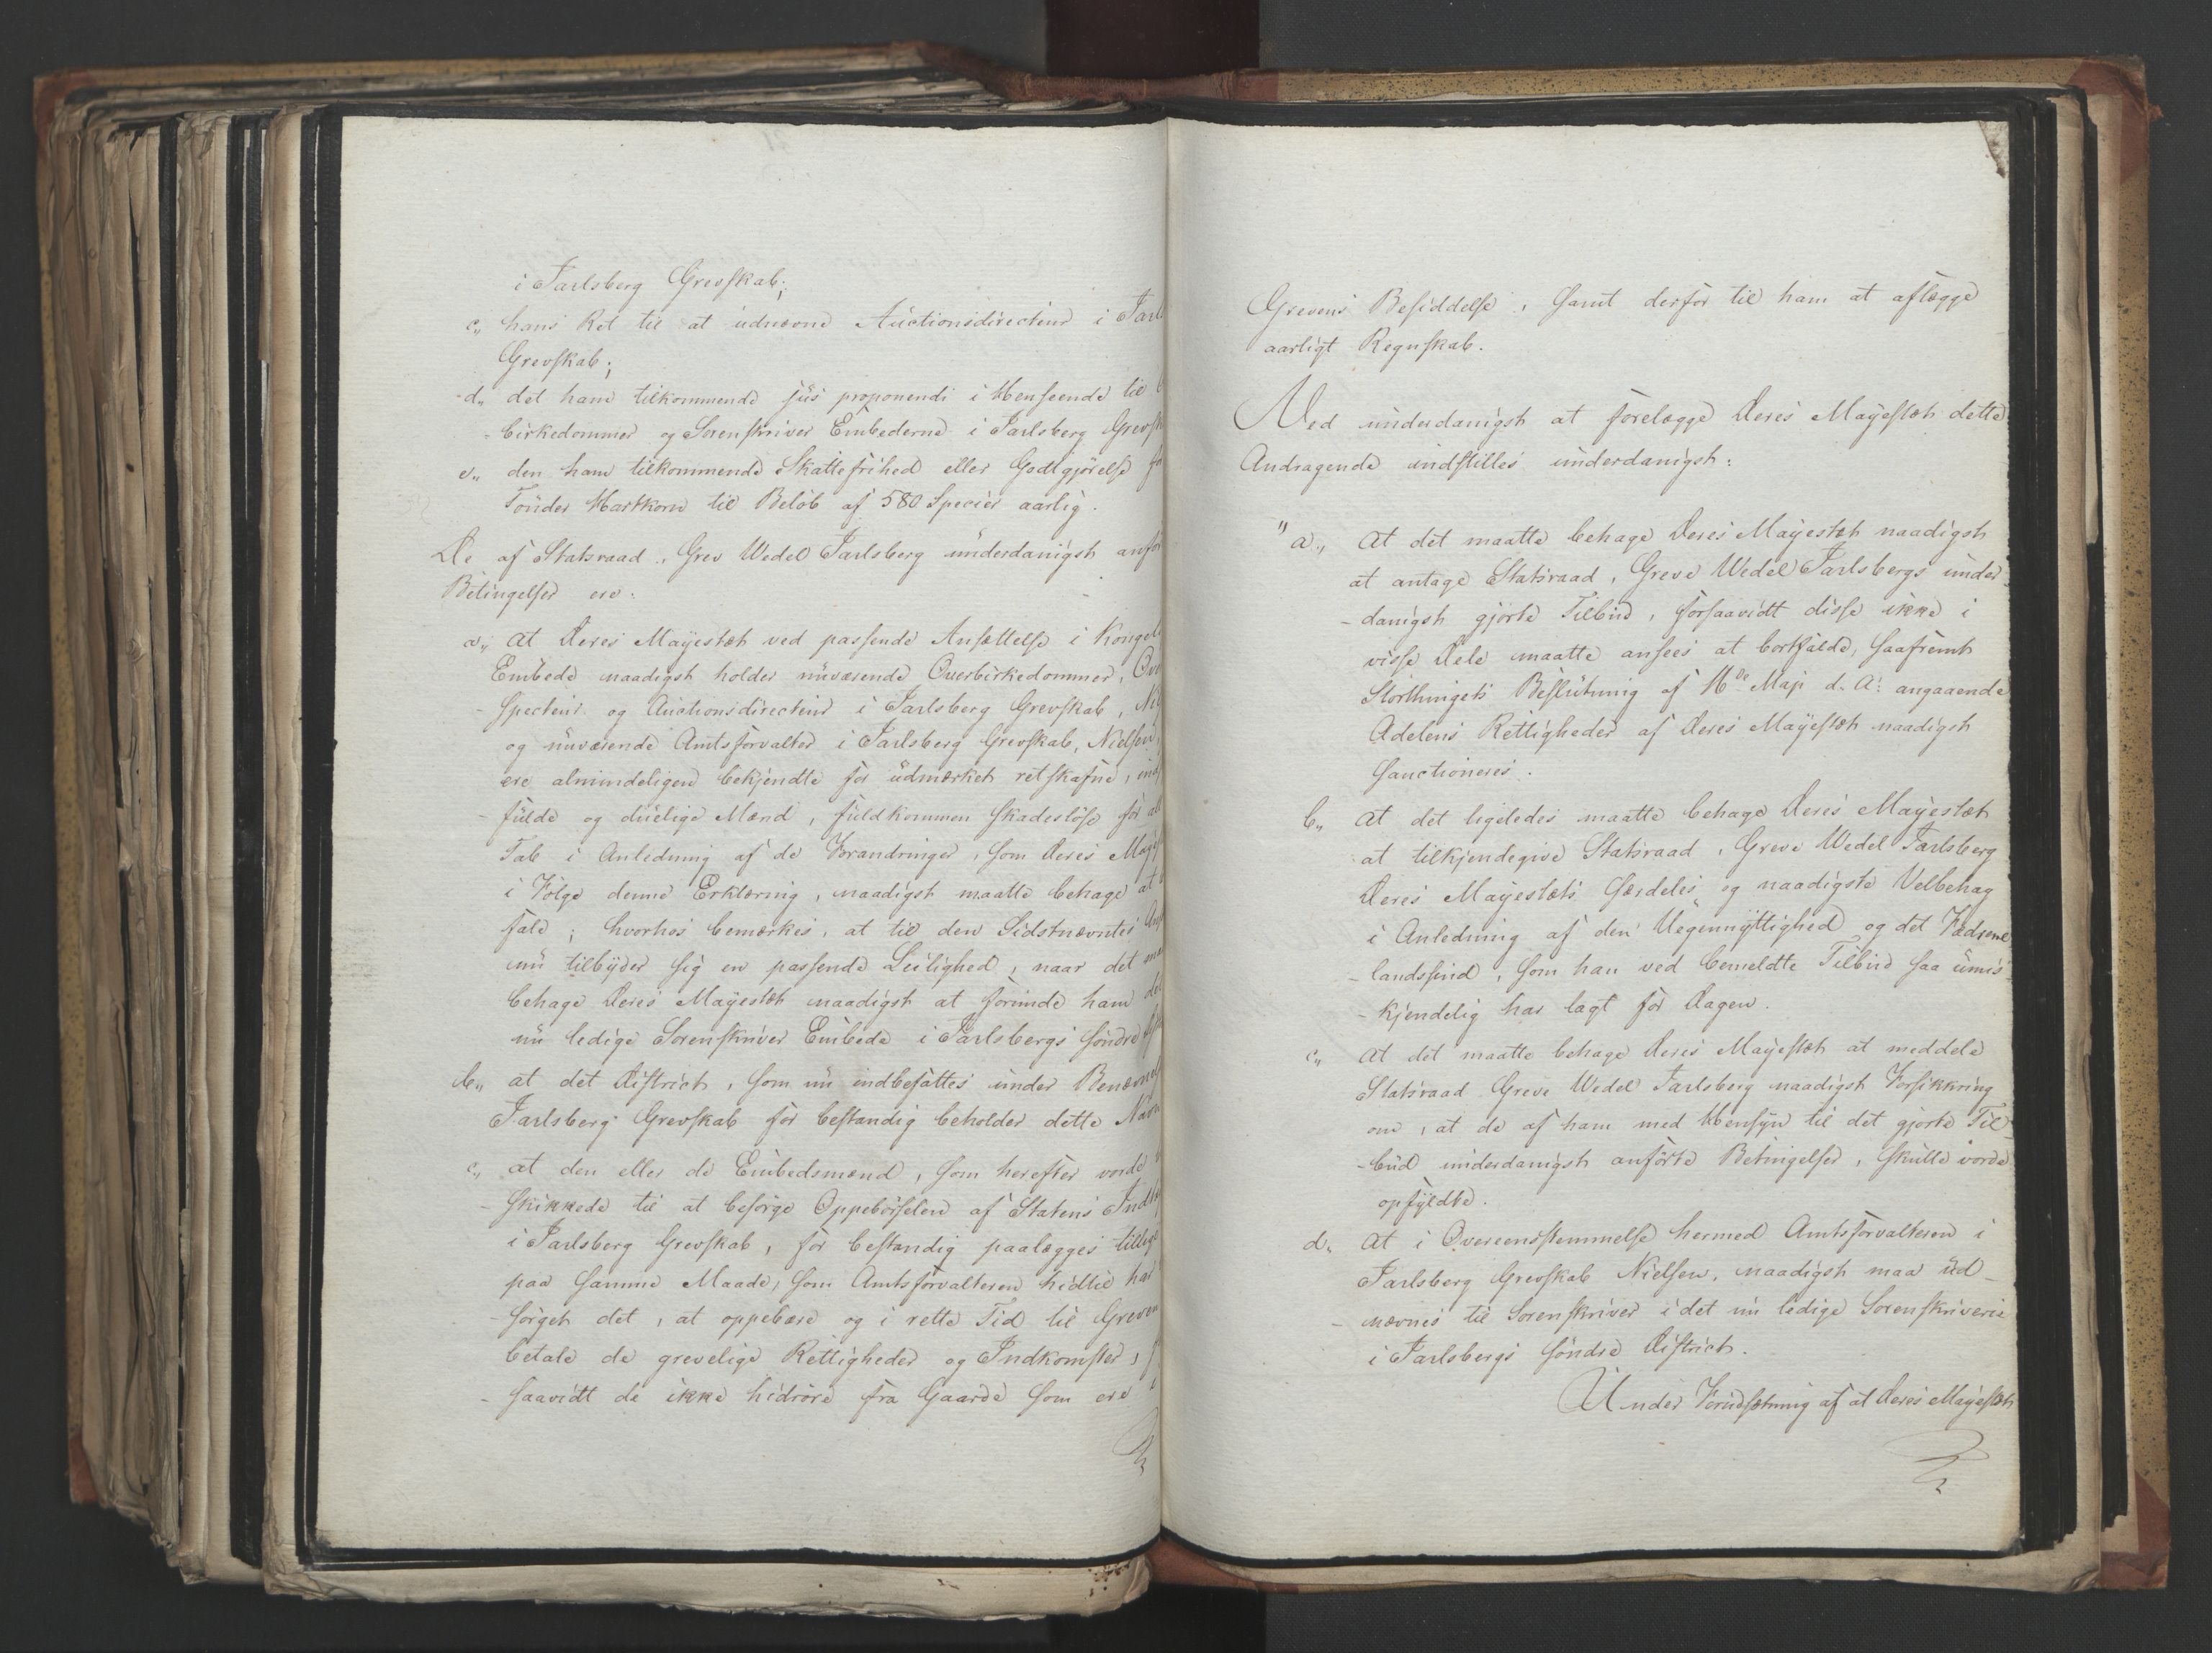 i Jarlsberg Grevskab;
c,, hans Ret til at udnævne Auctionsdirecteur i Jarl
Grevskab;
d,, det ham tilkommende jus proponendi i Henseende til
birkedommer og Sorenskriver Embederne i Jarlsberg Grevsk
e,, den ham tilkommende Skattefrihed eller Godtgjörelse
Tönder Hartkorn til Belöb af 580 Species aarlig.
De af Statsraad, Grev Wedel Jarlsberg underdanigst anför
Betingelser ere:
a,, at Deres Majestæt ved passende Ansættelse i Kongel
Embede naadigst holder nuværende Overbirkedommer,
specteur og Auctionsdirecteur i Jarlsberg Grevskab,
og nuværende Amtsforvalter i Jarlsberg Grevskab, Nielsen,
ere almindeligen bekjendte for udmærket retskafne, ind
fulde og duelige Mænd, fuldkommen skadeslöse for al
Tab i Anledning af de Forandringer, som Deres Majest
i Fölge denne Erklæring, naadigst maatte behage at
fald; hvorhos bemærkes, at til den Sidstnævntes An
nu tilbyder sig en passende Leilighed, naar det
behage Deres Majestæt naadigst at forunde ham det
nu ledige Sorenskriver Embede i Jarlsbergs söndre
b,, at det District, som nu indbefattes under Benævnel
Jarlsberg Grevskab for bestandig beholder dette Navn
c,, at den eller de Embedsmænd, som herefter vorde
skikkede til at besörge Oppebörselen af Statens Ind
i Jarlsberg Grevskab, for bestandig paalægges tillige
paa samme Maade, som Amtsforvalteren hidtil har
sörget det, at oppebære og i rette Tid til Greven
betale de grevelige Rettigheder og Indkomster,
saavidt de ikke hidröre fra Gaarde som ere
Grevens Besiddelse, samt derfor til ham at aflægge
aarligt Regnskab.
Ved underdanigst at forelægge Deres Majestæt dette
Andragende indstilles underdanigst:
"a,, At det maatte behage Deres Majestæt naadigst
at antage Statsraad, Greve Wedel Jarlsbergs under
-danigst gjorte Tilbud, forsaavidt disse ikke i
visse Dele maatte ansees at bortfalde, saafremt
Storthingets Beslutning af 16de Maji d. A: angaaende
Adelens Rettigheder af Deres Majestæt naadigst
sanctioneres.
b,, At det ligeledes maatte behage Deres Majestæt
at tilkjendegive Statsraad, Greve Wedel Jarlsberg
Deres Majestæts særdeles og naadigste Velbehag
i Anledning af den Uegennyttighed og det Fædrene
-landssind, som han ved bemeldte Tilbud saa umis
-kjendelig har lagt for Dagen.
c,, At det maatte behage Deres Majestæt at meddele
Statsraad Greve Wedel Jarlsberg naadigst Forsikkring
om, at de af ham med Hensyn til det gjorte Til-
-bud underdanigst anförte Betingelser, skulle vorde
opfyldte.
d,, At i Overeensstemmelse hermed Amtsforvalteren i
Jarlsberg Grevskab Nielsen, naadigst maa ud-
-nævnes til Sorenskriver i det nu ledige Sorenskriverie
i Jarlsbergs söndre District.
Under Forudsætning af at Deres Majestæt